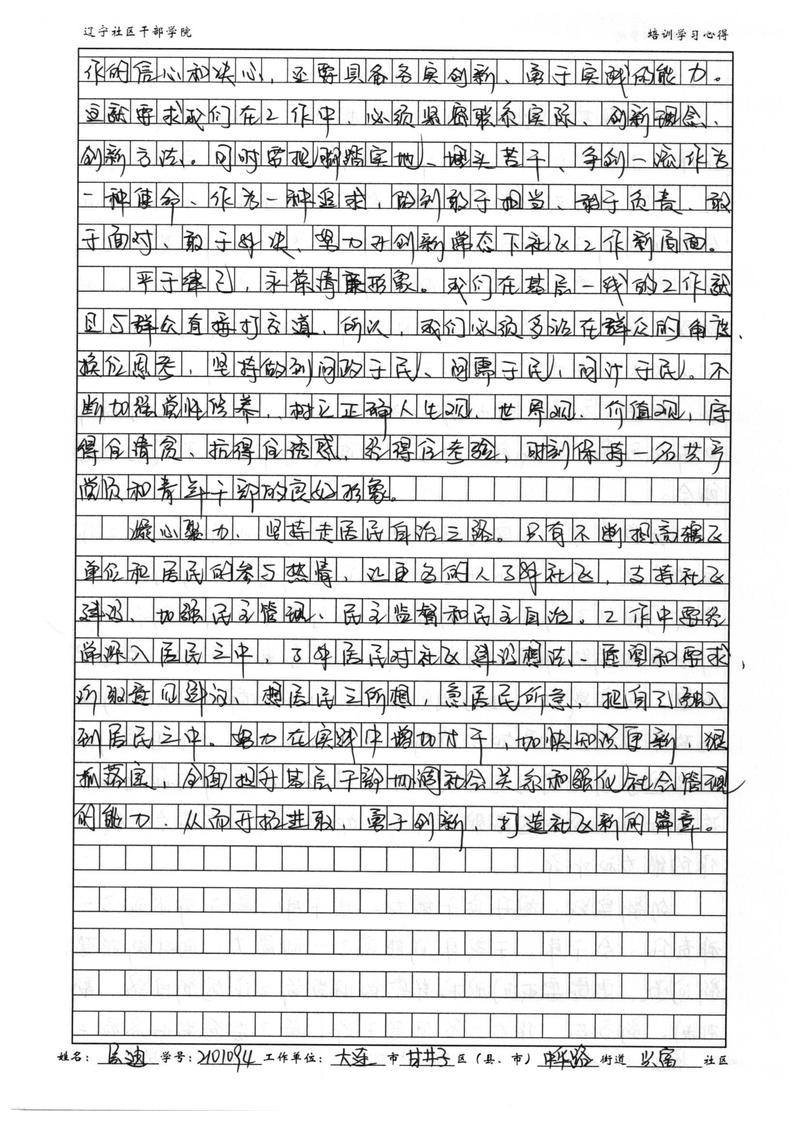 辽宁社区干部学院 培训学习心得
作的信心和决心，还要具备务实创新、勇于实践的能力。
这就要求我们在工作中，必须紧密联系实际、创新理念、
创新方法。同时要把脚踏实地、埋头苦干、争创一流作为
一种使命、作为一种追求，做到敢于担当、敢于负责、敢
于面对、敢于解决、努力开创新常态下社区工作新局面。
严于律己，永葆清廉形象。我们在基层一线的工作就
是与群众直接打交道，所以，我们必须多站在群众的角度，
换位思考，坚持做到问政于民、问需于民，问计于民。不
断加强党性修养，树立正确人生观、世界观、价值观，守
得住清贫、抗得住诱惑，经得住考验，时刻保持一名共产
党员和青年干部的良好形象。
凝心聚力、坚持走居民自治之路。只有不断提高辖区
单位和居民的参与热情，让更多的人了解社区，支持社区
建设、加强民主管理、民主监督和民主自治。工作中要经
常深入居民之中，了解居民对社区建设想法、愿望和要求，
听取意见建议，想居民之所想，急居民所急，把自己融入
到居民之中。努力在实践中增加才干，加快知识更新，狠
抓落实，全面提升基层干部协调社会关系和强化社会管理
的能力，从而开拓进取，勇于创新，打造社区新的篇章。
姓名： 迪 学号：2101094 工作单位： 大连 市 甘井子 区（县、市） 中华路 街道 兴富 社区